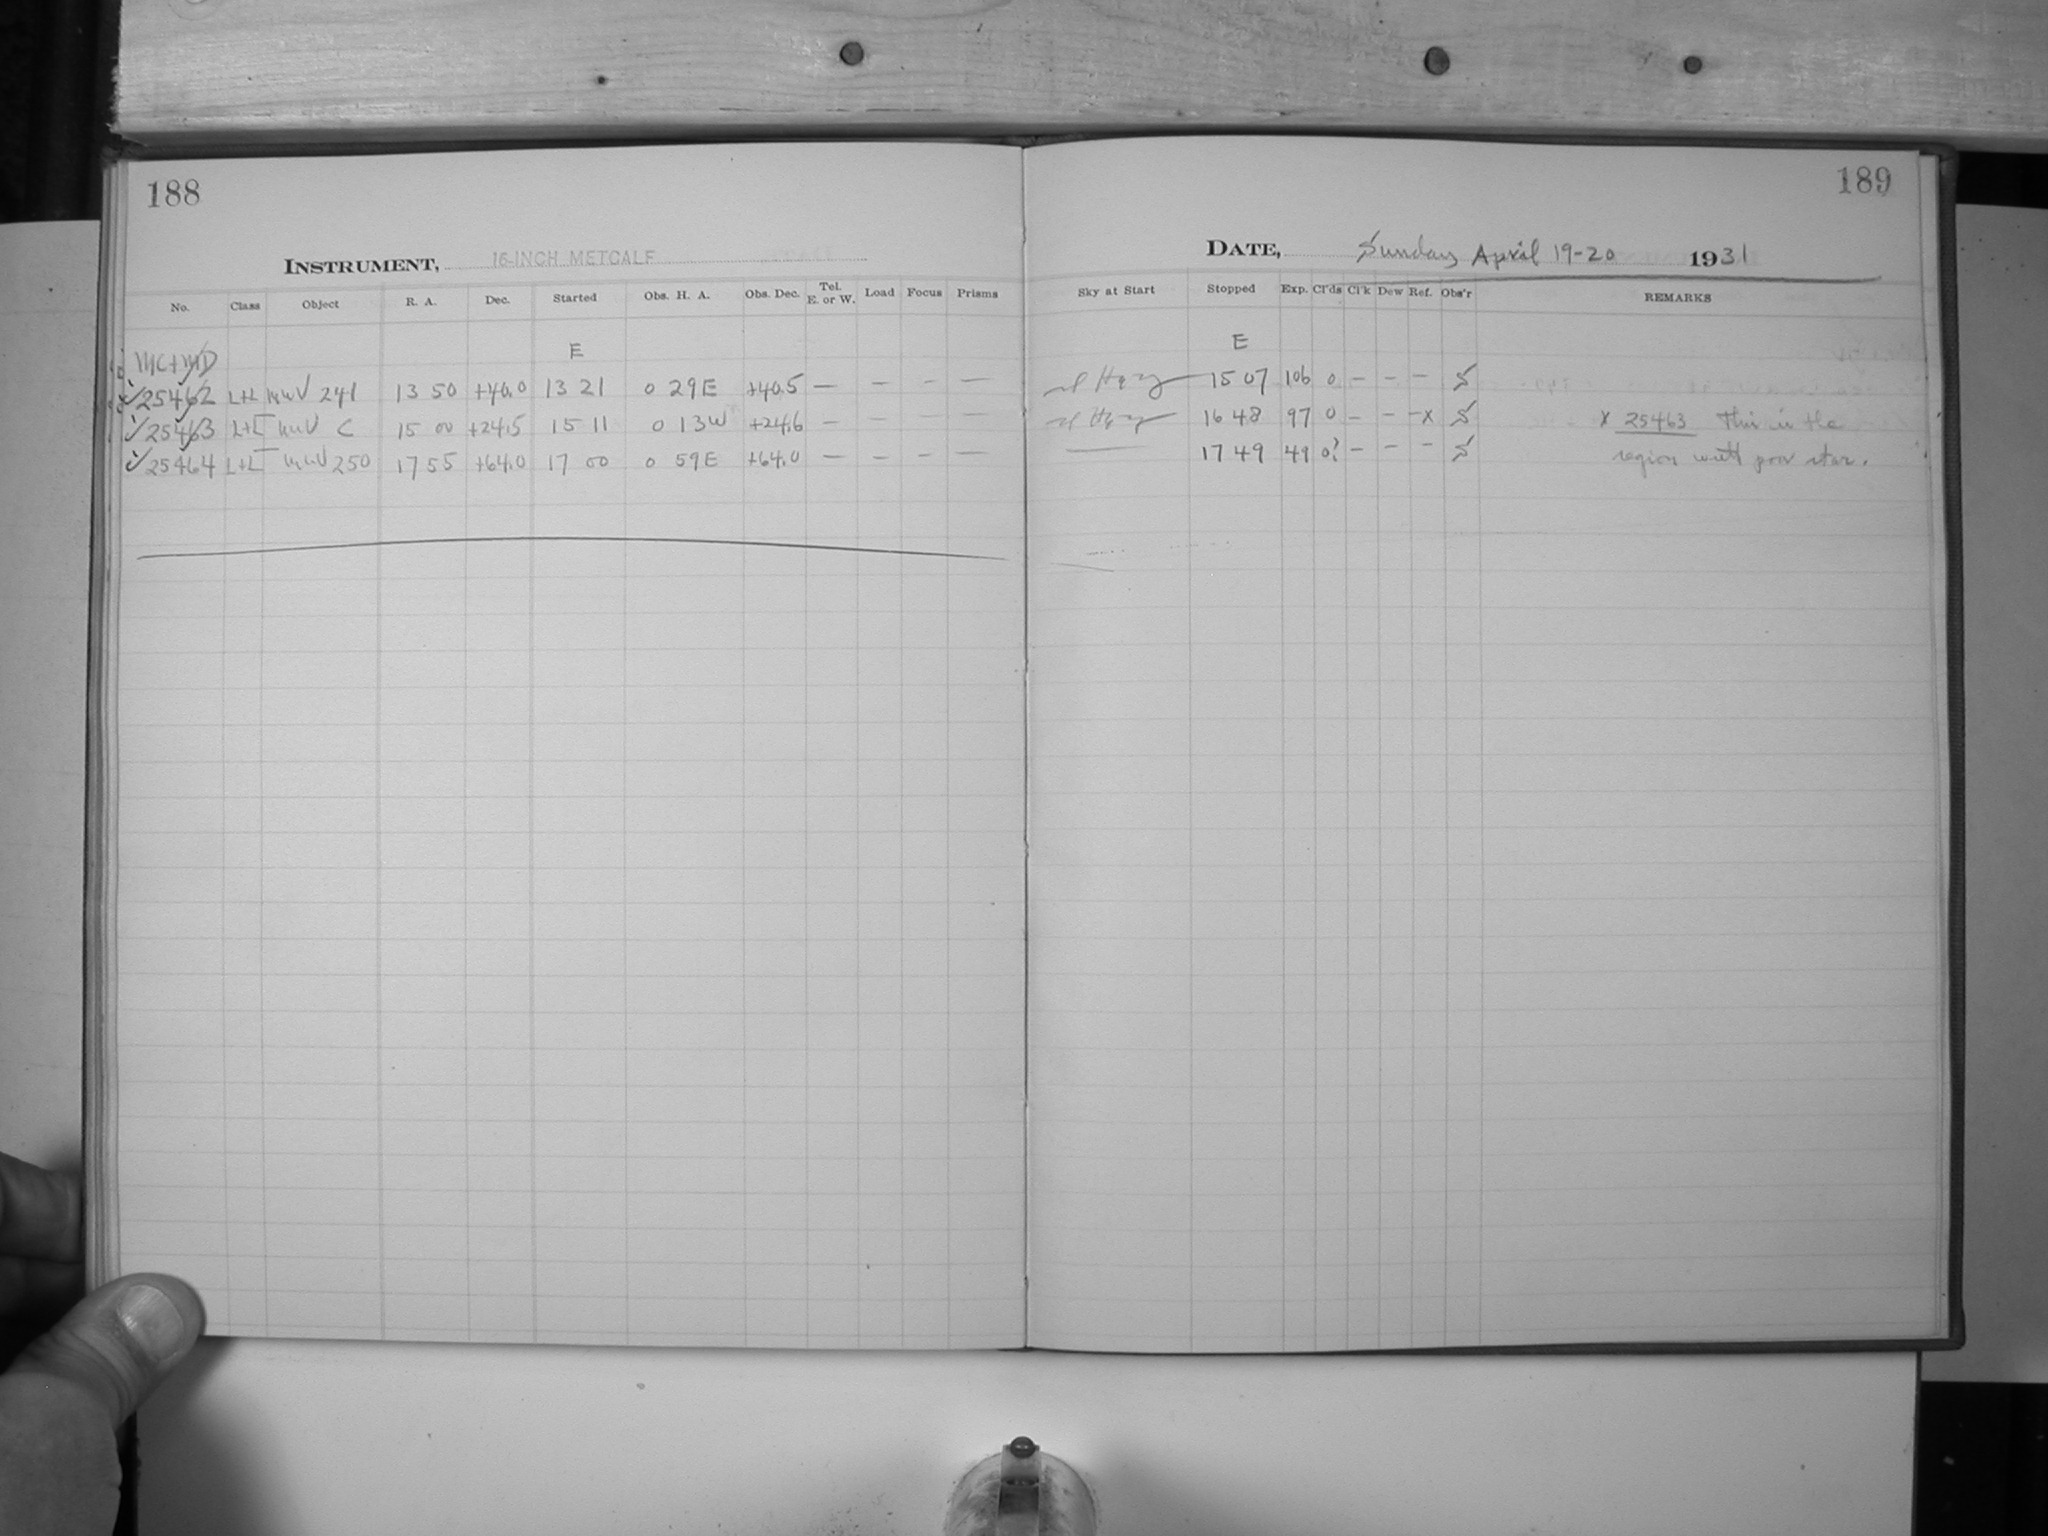 188
INSTRUMENT, 16-INCH METCALF
No. Class Object R. A. Dec. Started Obs. H. A. Obs. Dec. Tel. E. or W. Load Focus Prisms
MC+MD E
25462 L+L MWV 241 13 50 +40.0 13 21 0 29E +40.5 — — — —
25463 L+L MWV C 15 00 +24.5 15 11 0 13W +24.6 — — — —
25464 L+L MWV 250 17 55 +64.0 17 00 0 59E +64.0 — — — —
189
DATE, Sunday April 19-20 1931
Sky at Start Stopped Exp. Cl'ds Cl'k Dew Ref. Obs'r REMARKS
E
Hazy 15 07 106 0 — — — S
Hazy 16 48 97 0 — — —x S x 25463 This is the
— 17 49 49 0? — — — S region with poor star.